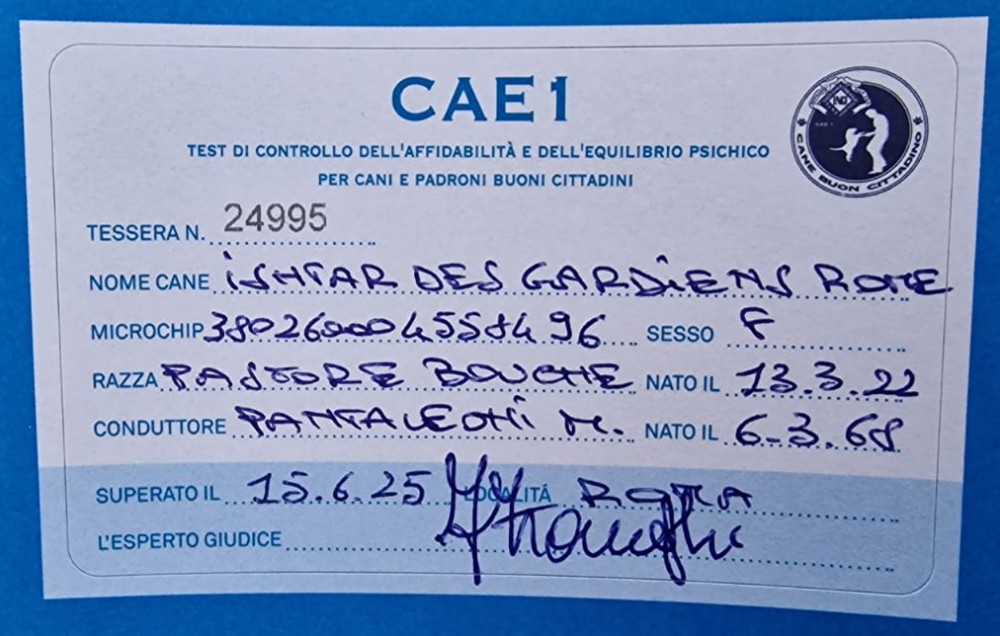 CAE1
TEST DI CONTROLLO DELL'AFFIDABILITÀ E DELL'EQUILIBRIO PSICHICO
PER CANI E PADRONI BUONI CITTADINI
CANE BUON CITTADINO
TESSERA N. 24995
NOME CANE iSHTAR DES GARDiENS ROME
MICROCHIP 380260004558496 SESSO F
RAZZA PASTORE BOUCHE NATO IL 13.3.22
CONDUTTORE PANTALEONi M. NATO IL 6.3.68
SUPERATO IL 15.6.25 LOCALITÁ ROMA
L'ESPERTO GIUDICE